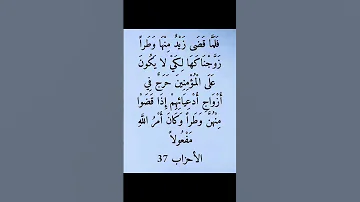 فَلَمَّا قَضَى زَيْدٌ مِنْهَا وَطَراً
زَوَّجْنَاكَهَا لِكَيْ لا يَكُونَ
عَلَى الْمُؤْمِنِينَ حَرَجٌ فِي
أَزْوَاجِ أَدْعِيَائِهِمْ إِذَا قَضَوْا
مِنْهُنَّ وَطَراً وَكَانَ أَمْرُ اللَّهِ
مَفْعُولاً
الأحزاب 37